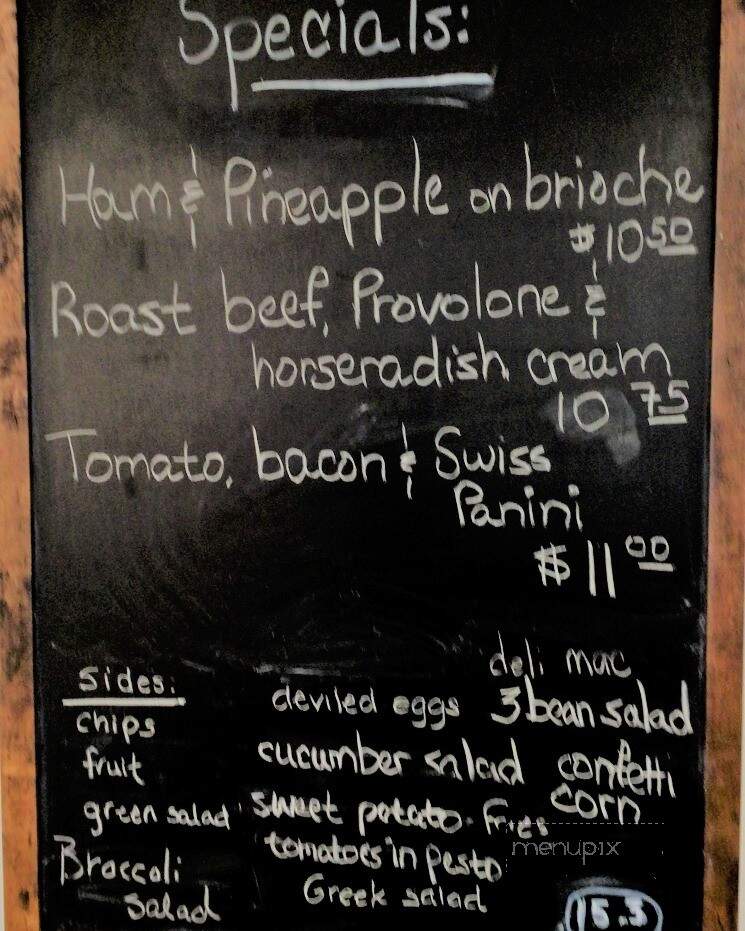 Specials:
Ham & Pineapple on brioche
$10 50
Roast beef, Provolone &
horseradish cream
10 75
Tomato, bacon & Swiss
Panini
$11 00
sides:
chips
fruit
green salad
Broccoli
salad
deviled eggs
cucumber salad
sweet potato fries
tomatoes in pesto
Greek salad
deli mac
3 bean salad
confetti
corn
menupix
15.3